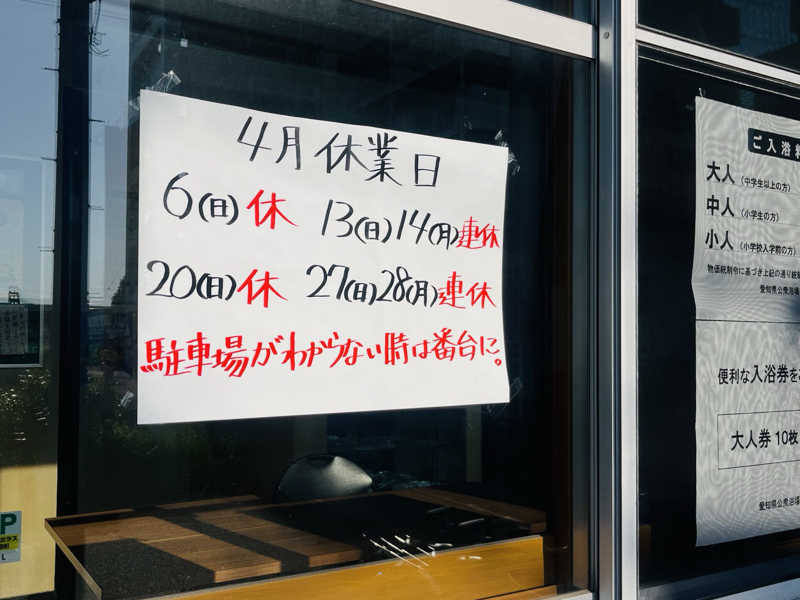 4月休業日
6(日)休 13(日)14(月)連休
20(日)休 27(日)28(月)連休
駐車場がわからない時は番台に。
ご入浴料
大人(中学生以上の方)
中人(小学生の方)
小人(小学校入学前の方)
物価統制令に基づき上記の通り統制
愛知県公衆浴場
便利な入浴券を
大人券10枚
愛知県公衆浴場
P
L